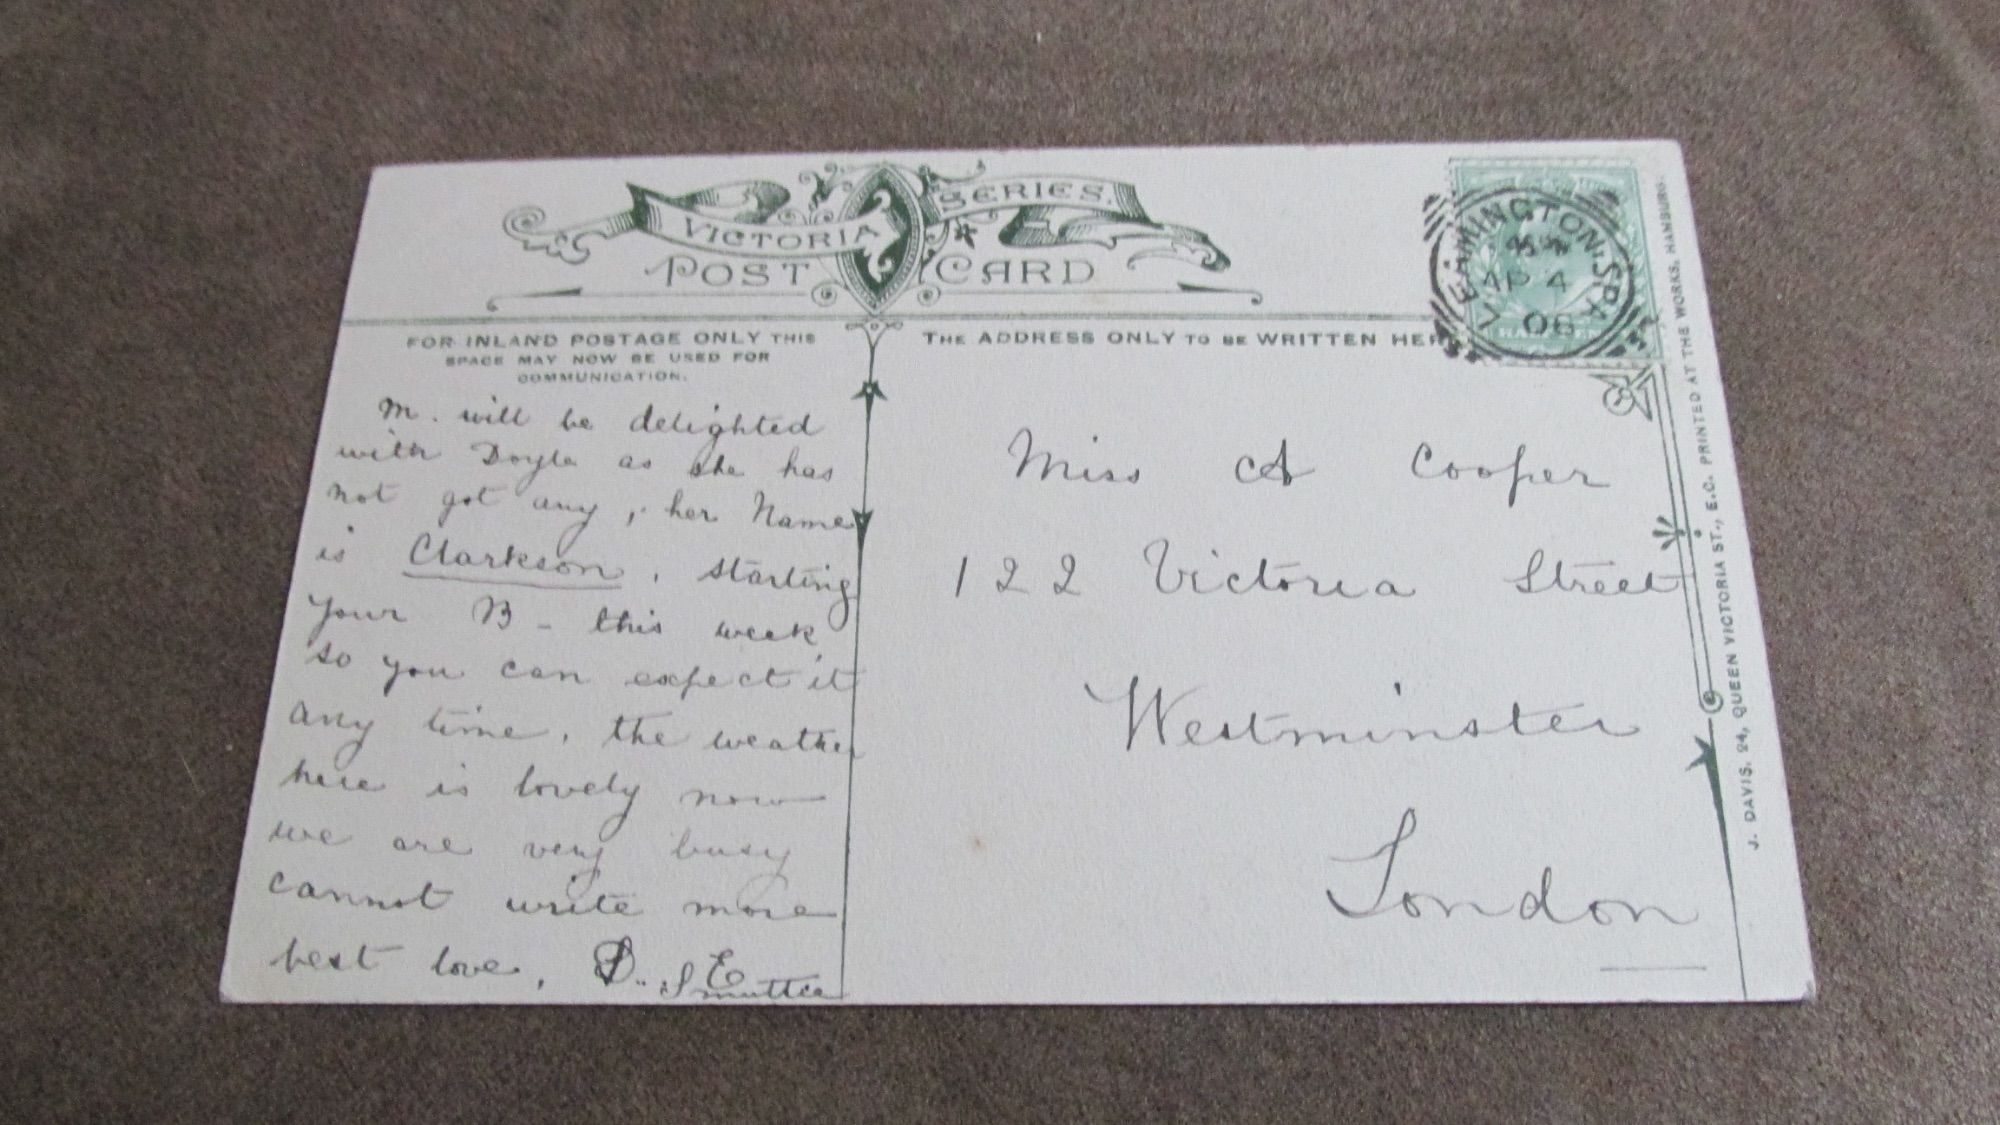 VICTORIA SERIES.
POST CARD
FOR INLAND POSTAGE ONLY THIS
SPACE MAY NOW BE USED FOR
COMMUNICATION.
THE ADDRESS ONLY TO BE WRITTEN HER
LEAMINGTON-SPA
AP 4
06
M. will be delighted
with Doyle as she has
not got any, her Name
is Clarkson, starting
your B - this week,
so you can expect it
any time, the weather
here is lovely now
we are very busy
cannot write more
best love,
Miss A Cooper
122 Victoria Street
Westminster
London
J. DAVIS, 24, QUEEN VICTORIA ST., E.C. PRINTED AT THE WORKS, HAMBURG.